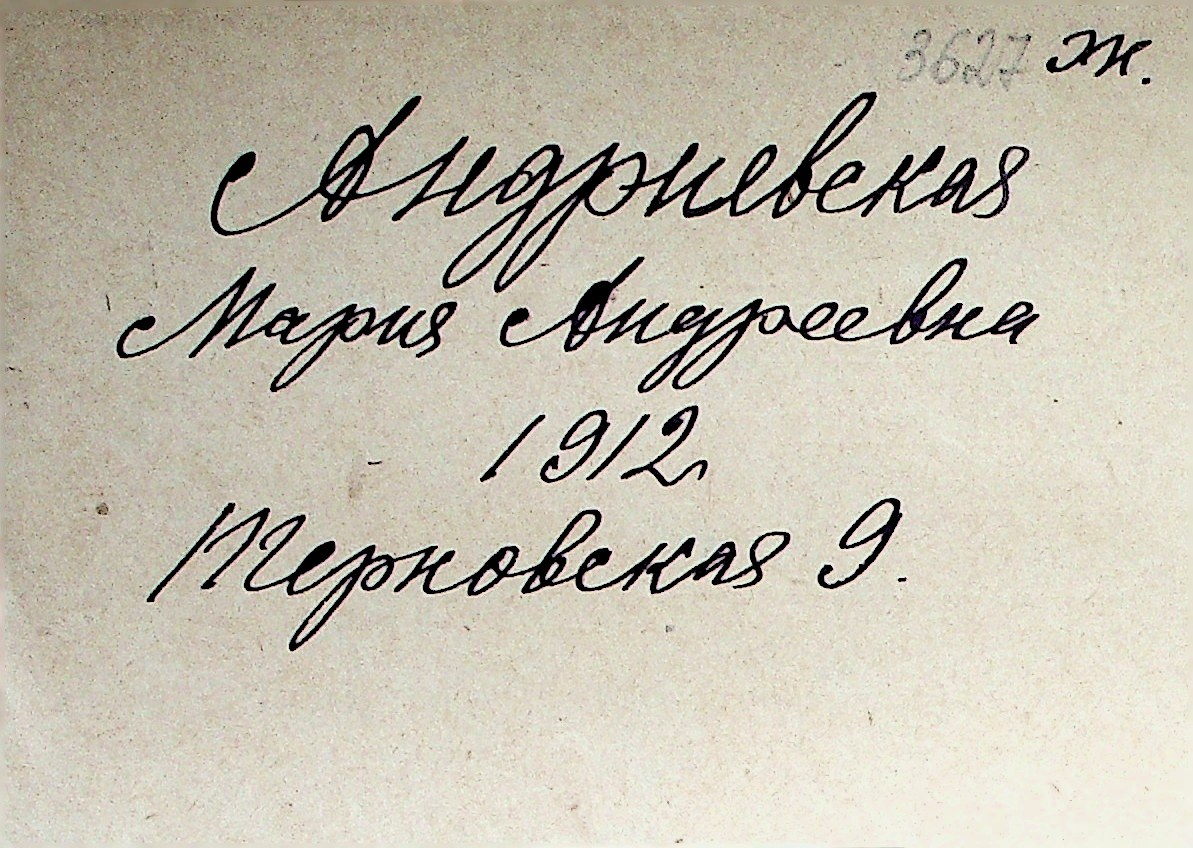 3627 ж.
Андриевская
Мария Андреевна
1912
Терновская 9.